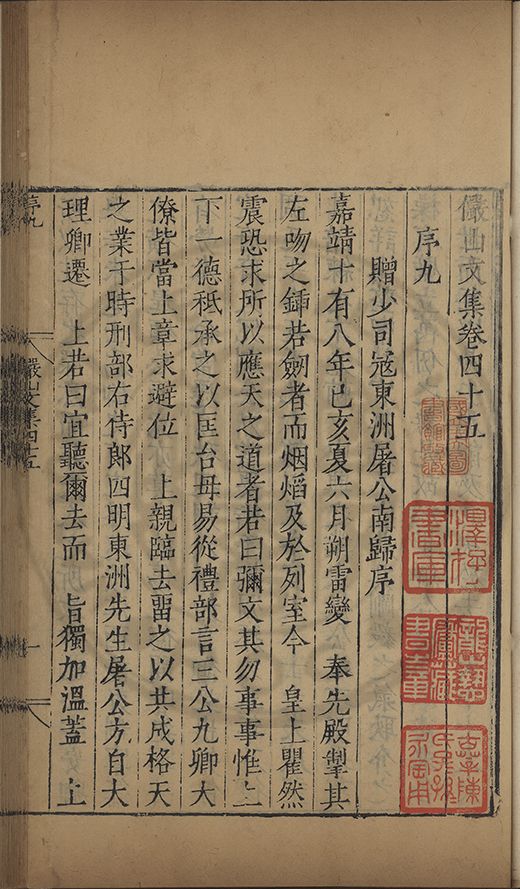 儼山文集卷四十五
序九
贈少司冦東洲屠公南歸序
嘉靖十有八年己亥夏六月朔雷變　奉先殿掣其
左吻之鍤若劒者而烟熖及於列室今　皇上瞿然
震恐求所以應天之道者若曰彌文其勿事事惟上
下一德秪承之以匡台毋易從禮部言三公九卿大
僚皆當上章求避位　上親臨去畱之以共成格天
之業于時刑部右侍郎四明東洲先生屠公方自大
理卿遷　上若曰宜聽爾去而　旨獨加溫蓋　上
序九
儼山文集四十五
一
澤存書庫